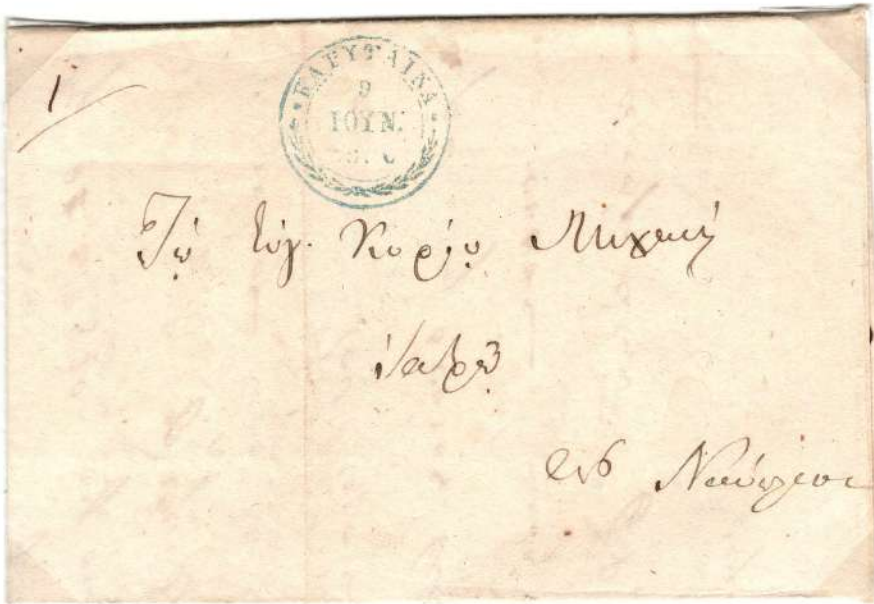 1
ΚΑΡΥΤΑΙΝΑ
9
ΙΟΥΝ.
Τῷ Εὐγ. Κυρίῳ Μιχαὴλ
ἰατρῷ
εἰς Ναύπλιον